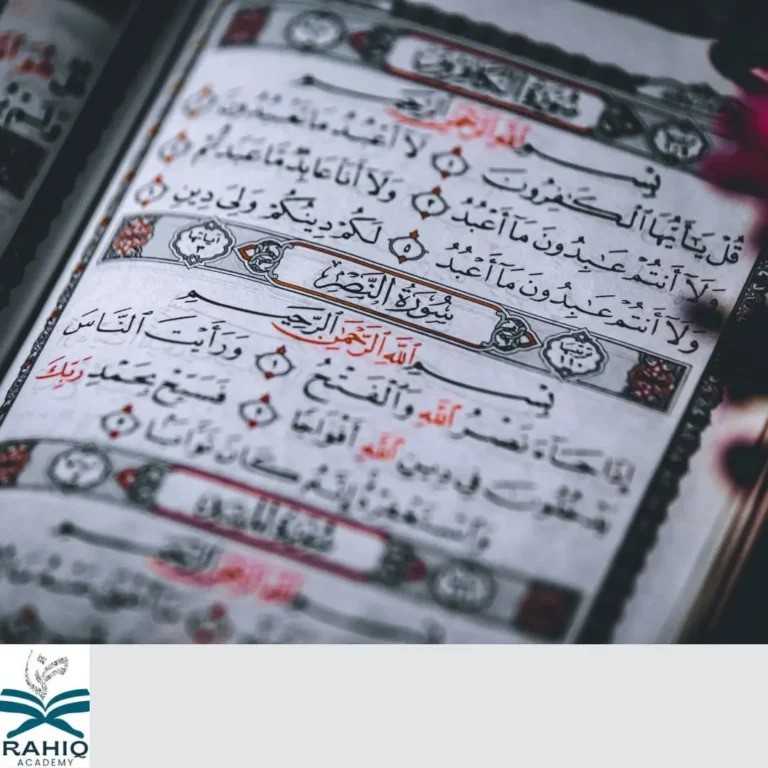 سُورَةُ الكَافِرُونَ
بِسْمِ ٱللَّهِ ٱلرَّحْمَٰنِ ٱلرَّحِيمِ
قُلْ يَٰٓأَيُّهَا ٱلْكَٰفِرُونَ ١ لَآ أَعْبُدُ مَا تَعْبُدُونَ ٢
وَلَآ أَنتُمْ عَٰبِدُونَ مَآ أَعْبُدُ ٣ وَلَآ أَنَا۠ عَابِدٌ مَّا عَبَدتُّمْ ٤
وَلَآ أَنتُمْ عَٰبِدُونَ مَآ أَعْبُدُ ٥ لَكُمْ دِينُكُمْ وَلِيَ دِينِ ٦
سُورَةُ النَّصْرِ
بِسْمِ ٱللَّهِ ٱلرَّحْمَٰنِ ٱلرَّحِيمِ
إِذَا جَآءَ نَصْرُ ٱللَّهِ وَٱلْفَتْحُ ١ وَرَأَيْتَ ٱلنَّاسَ
يَدْخُلُونَ فِي دِينِ ٱللَّهِ أَفْوَاجًا ٢ فَسَبِّحْ بِحَمْدِ رَبِّكَ
وَٱسْتَغْفِرْهُ إِنَّهُۥ كَانَ تَوَّابًا ٣
بِسْمِ ٱللَّهِ ٱلرَّحْمَٰنِ ٱلرَّحِيمِ
RAHIQ
ACADEMY